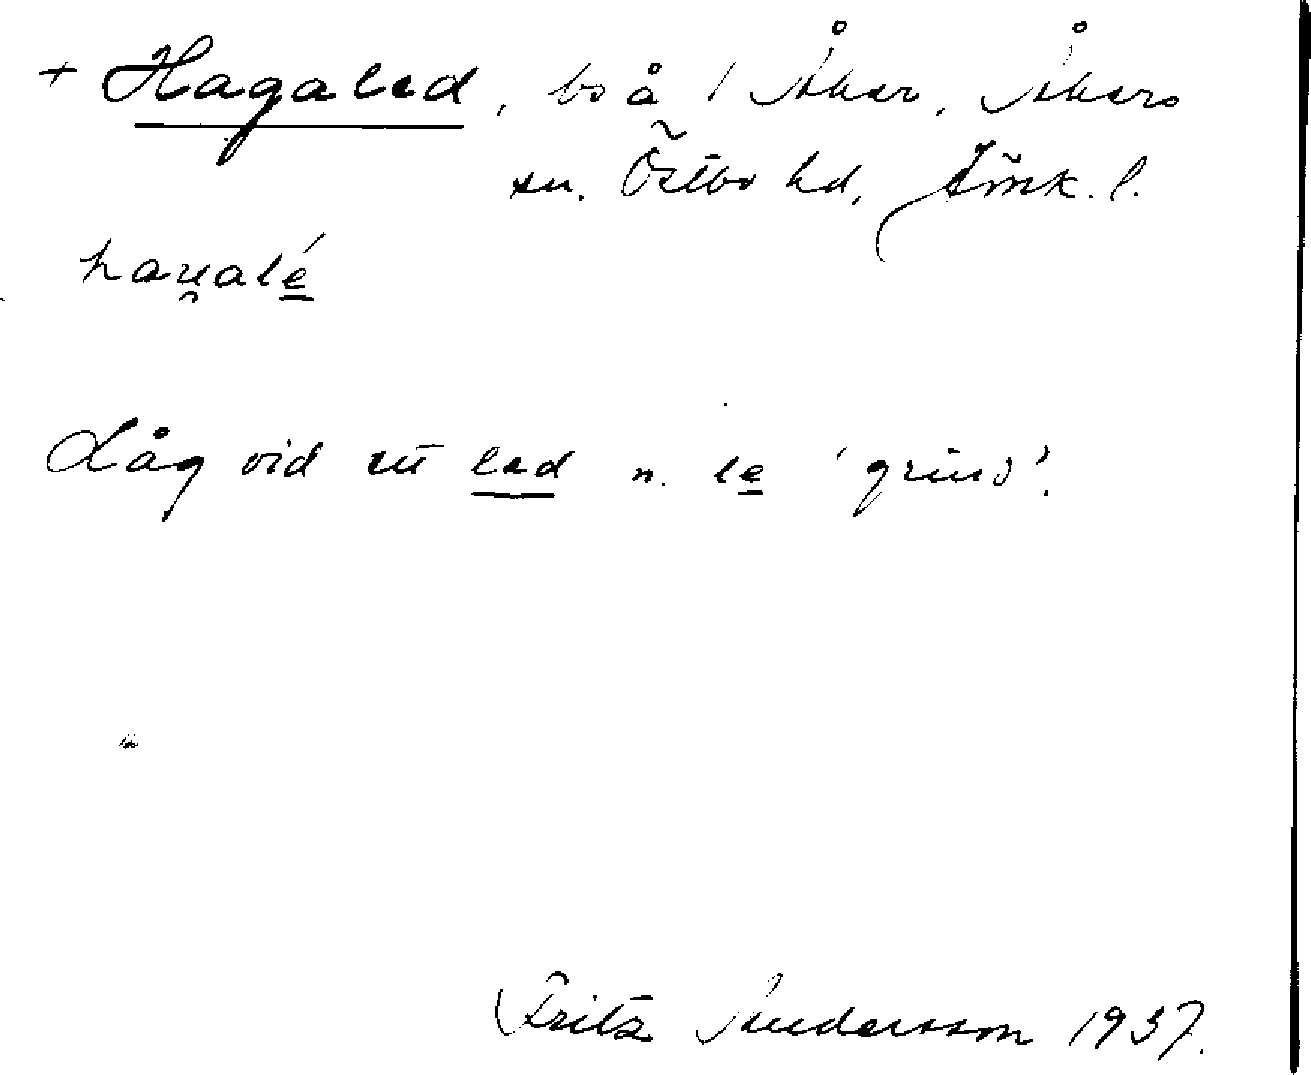 + Hagaled, bs å 1 Åker, Åkers
sn. Östbo hd, Jönk. l.
hau̯alé
Låg vid ett led n. le 'grind'.
Fritz Andersson 1937.